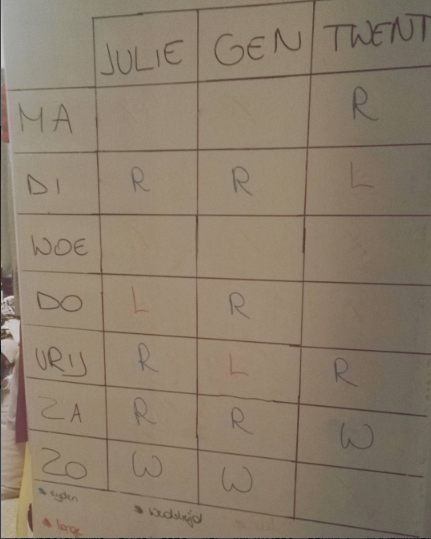 JULIE GEN TWENT
MA R
DI R R L
WOE
DO L R
VRIJ R L R
ZA R R W
ZO W W
lange